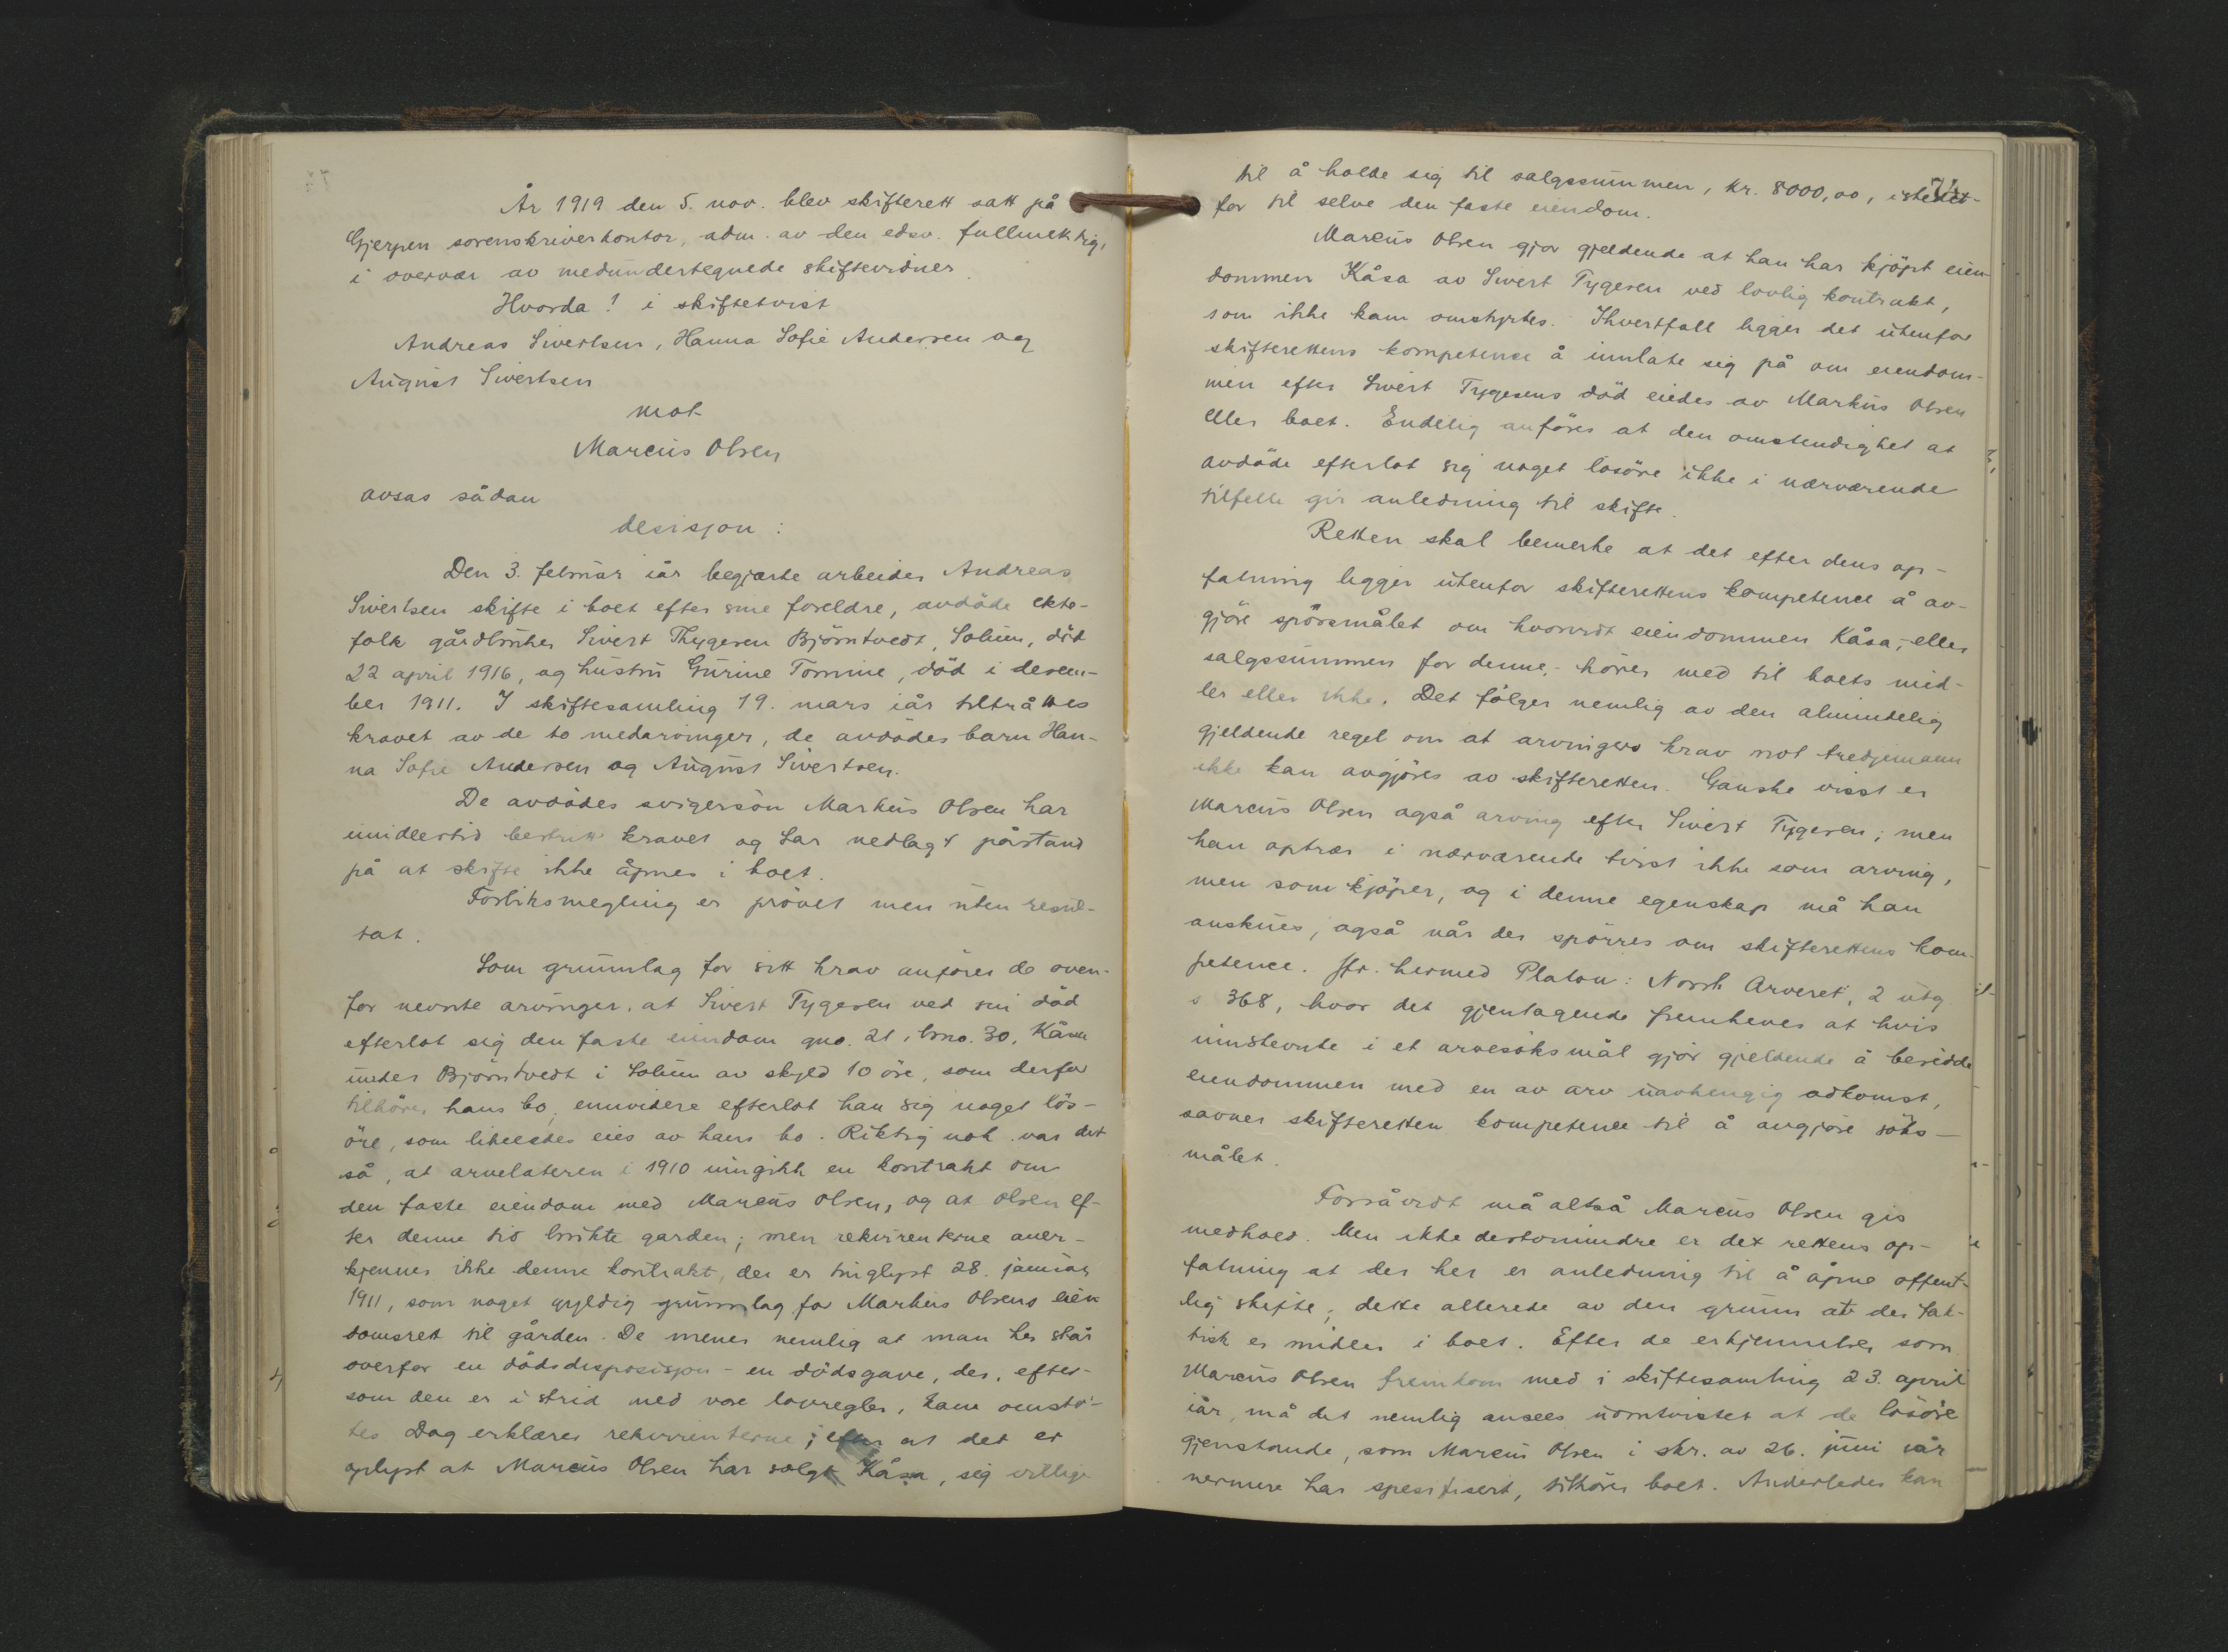 År 1919 den 5. nov. blev skifterett satt på
Gjerpen sorenskriverkontor, adm. av den edsv. fullmektig,
i overvær av medundertegnede skiftevidner.
Hvorda! i skiftetvist
Andreas Sivertsen, Hanna Sofie Andersen og
August Sivertsen
mot
Marcus Olsen
avsas sådan
desisjon:
Den 3. februar iår begjærte arbeider Andreas
Sivertsen skifte i boet efter sine foreldre, avdöde ekte-
folk gårdbruker Sivert Thygesen Björntvedt, Solum, död
22 april 1916, og hustru Gurine Tomine, död i desem-
ber 1911. I skiftesamling 19. mars iår tiltråttes
kravet av de to medarvinger, de avdödes barn Han-
na Sofie Andersen og August Sivertsen.
De avdödes svigersön Markus Olsen har
imidlertid bestritt kravet og har nedlagt påstand
på at skifte ikke åpnes i boet.
Forliksmegling er prövet men uten resul-
tat.
Som grunnlag for sitt krav anförer de oven-
for nevnte arvinger, at Sivert Tygesen ved sin död
efterlot sig den faste eiendom gno. 21, bno. 30, Kåsa
under Björntvedt i Solum av skyld 10 öre, som derfor
tilhörer hans bo, ennvidere efterlot han sig noget lös-
öre, som likeledes eies av hans bo. Riktig nok var det
så, at arvelateren i 1910 inngikk en kontrakt om
den faste eiendom med Marcus Olsen, og at Olsen ef-
ter denne tid brukte garden; men rekvirentene aner-
kjenner ikke denne kontrakt, der er tinglyst 28. januar
1911, som noget gyldig grunnlag for Markus Olsens eien
domsrett til gården. De mener nemlig at man her står
overfor en dödsdisposisjon - en dödsgave, der, efter-
som den er i strid med vore lovregler, kan omstö-
tes. Dog erklærer rekvirentene; efter at det er
oplyst at Marcus Olsen har solgt Kåsa, sig villige
til å holde sig til salgssummen, kr. 8000,00, istedet-
for til selve den faste eiendom.
Marcus Olsen gjör gjeldende at han har kjöpt eien-
dommen Kåsa av Sivert Tygesen ved lovlig kontrakt,
som ikke kan omstyrtes. Ihvertfall ligger det utenfor
skifterettens kompetence å innlate sig på om eiendom-
men efter Sivert Tygesens död eiedes av Markus Olsen
eller boet. Endelig anföres at den omstendighet at
avdöde efterlot sig noget lösöre ikke i nærværende
tilfelle gir anledning til skifte.
Retten skal bemerke at det efter dens op-
fatning ligger utenfor skifterettens kompetence å av-
gjöre spörsmålet om hvorvidt eiendommen Kåsa,- eller
salgssummen for denne,- hörer med til boets mid-
ler eller ikke. Det fölger nemlig av den almindelig
gjeldende regel om at arvingers krav mot tredjemann
ikke kan avgjöres av skifteretten. Ganske visst er
Marcus Olsen også arving efter Sivert Tygesen; men
han optrær i nærværende tvist ikke som arving,
men som kjöper, og i denne egenskap må han
anskues, også når der spörres om skifterettens kom-
petence. Jfr. hermed Platou: Norsk Arveret, 2 utg
s 368, hvor det gjentagende fremheves at hvis
innstevnte i et arvesöksmål gjör gjeldende å besidde
eiendommen med en av arv uavhengig adkomst,
savner skifteretten kompetence til å avgjöre söks-
målet.
Forsåvidt må altså Marcus Olsen gis
medhold. Men ikke destomindre er det rettens op-
fatning at der her er anledning til å åpne offent-
lig skifte, dette allerede av den grunn at der fak-
tisk er midler i boet. Efter de erkjennelser som
Marcus Olsen fremkom med i skiftesamling 23. april
iår, må det nemlig ansees uomtvistet at de lösöre
gjenstande, som Marcus Olsen i skr. av 26. juni iår
nermere har spesifisert, tilhörer boet. Anderledes kan